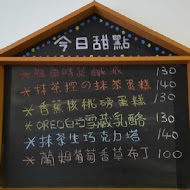 今日甜點
130
*抹茶控の抹茶蛋糕 140
*香蕉核桃磅蛋糕 130
*OREO白巧雪藏乳酪 130
*抹茶生巧克力塔 140
*蘭姆葡萄香草布丁 100